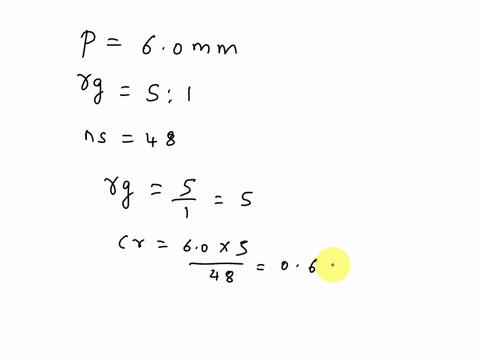 P = 6.0 mm
rg = 5:1
ns = 48
rg = 5/1 = 5
Cr = 6.0 x 5 / 48 = 0.6